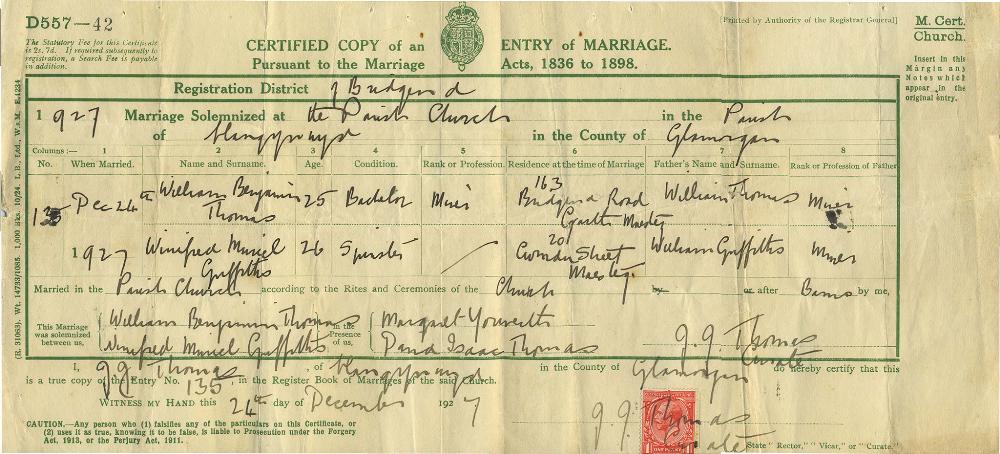 D557—42
[Printed by Authority of the Registrar General]
M. Cert.
Church.
The Statutory Fee for this Certificate
is 2s. 7d. If required subsequently to
registration, a Search Fee is payable
in addition.
CERTIFIED COPY of an ENTRY of MARRIAGE.
Pursuant to the Marriage Acts, 1836 to 1898.
Insert in this
Margin any
Notes which
appear in the
original entry.
Registration District of Bridgend
1927 Marriage Solemnized at the Parish Church in the Parish
of Llangynwyd in the County of Glamorgan
Columns :— 1 2 3 4 5 6 7 8
No. When Married. Name and Surname. Age. Condition. Rank or Profession. Residence at the time of Marriage Father's Name and Surname. Rank or Profession of Father
135 Dec 24th William Benjamin Thomas 25 Bachelor Miner 163 Bridgend Road Garth Maesteg William Thomas Miner
1927 Winifred Muriel Griffiths 26 Spinster 20 Street Maesteg William Griffiths Miner
Married in the Parish Church according to the Rites and Ceremonies of the Church by or after Banns by me,
This Marriage was solemnized between us, William Benjamin Thomas in the Presence of us, Margaret J.J. Thomas
Winifred Muriel Griffiths David Isaac Thomas Curate
I, J.J. Thomas, of Llangynwyd in the County of Glamorgan do hereby certify that this
is a true copy of the Entry No. 135, in the Register Book of Marriages of the said Church.
WITNESS MY HAND this 24th day of December 1927
J.J. Thomas
Curate
CAUTION.—Any person who (1) falsifies any of the particulars on this Certificate, or
(2) uses it as true, knowing it to be false, is liable to Prosecution under the Forgery
Act, 1913, or the Perjury Act, 1911.
State "Rector," "Vicar," or "Curate."